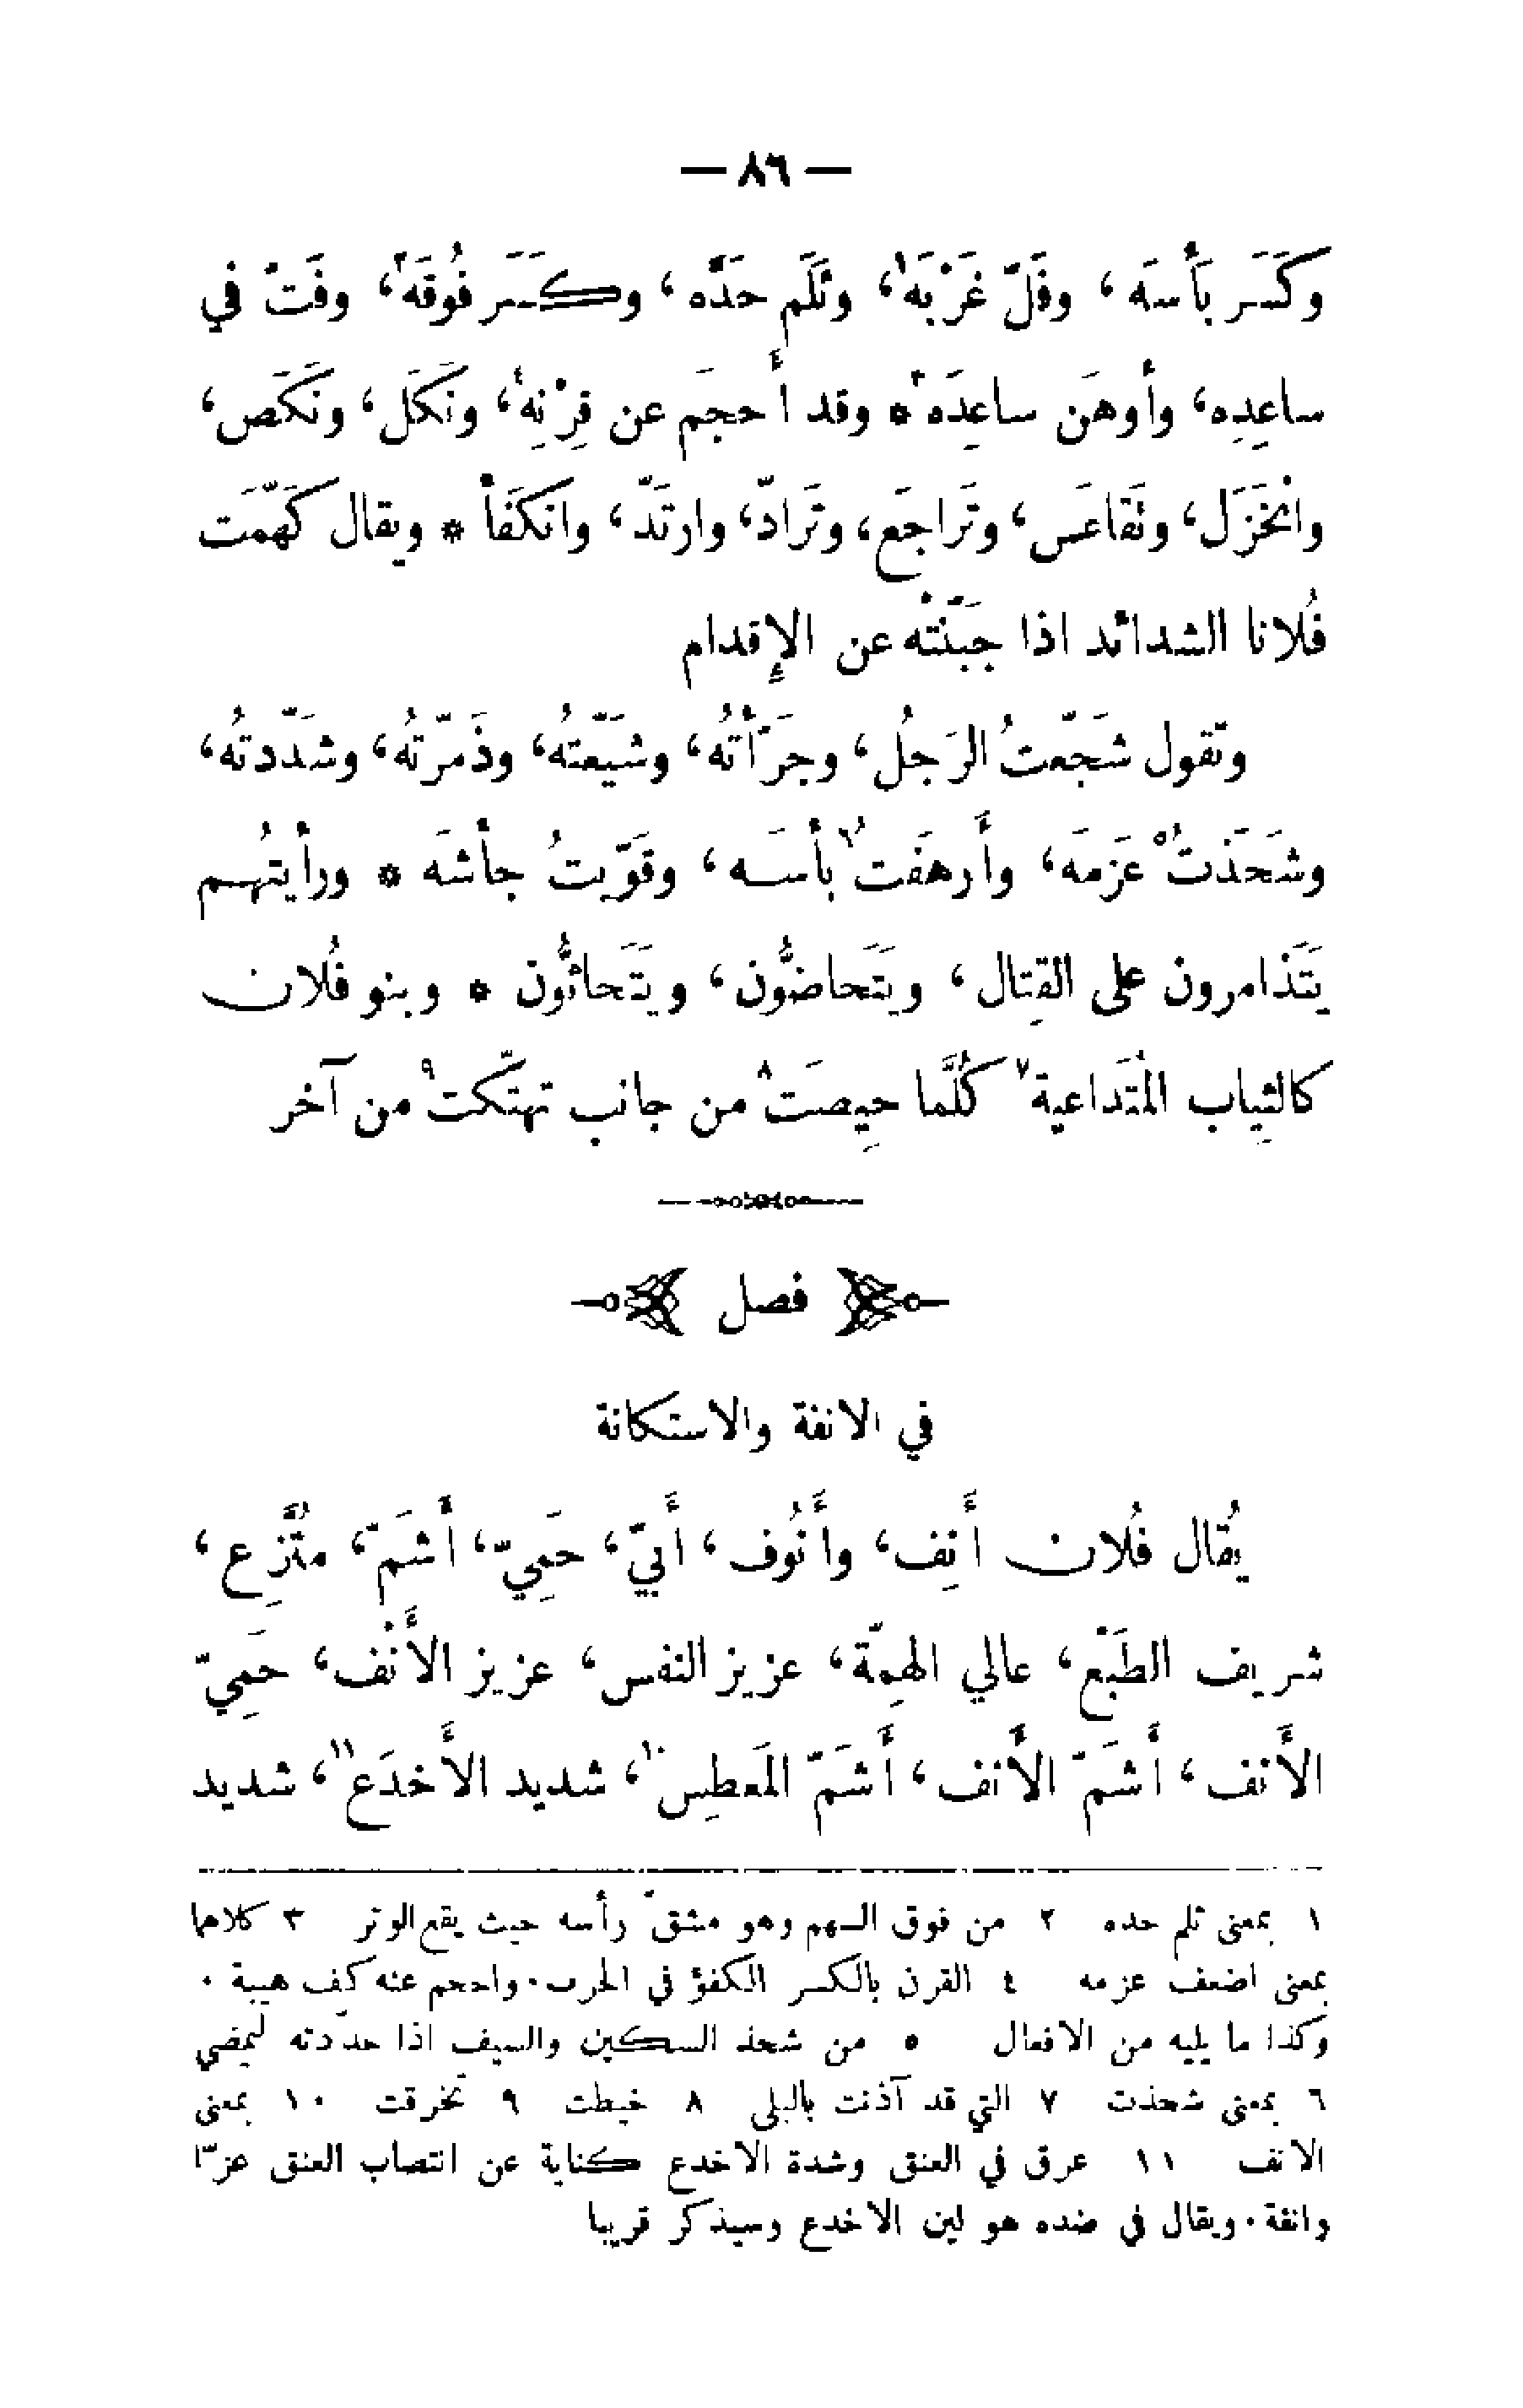 — ٨٦ —
وكَسَر بَأْسَه ، وفَلّ غَرْبَه١ ، وثَلَم حَدَّه ، وكَسَر فُوقَه٢ ، وفَتّ في
ساعِدِه ، وأَوهَن ساعِدَه٣ * وقد أَحجَم عن قِرْنِهِ٤ ، ونَكَل ، ونَكَص ،
وانْخَزَل ، وتَقاعَس ، وتَراجَع ، وتَرادّ ، وارتَدّ ، وانكَفَأ * ويقال كَهّمَت
فُلانا الشدائد اذا جَبّنَتْه عن الإِقدام
وتقول شَجّعتُ الرَجُل ، وجَرَّأتُه ، وشَيّعتُه ، وذَمّرتُه ، وشَدّدتُه ،
وشَحَذتُ٥ عَزمَه ، وأَرهَفتُ٦ بأسَه ، وقَوّيتُ جأشَه * ورأيتُهم
يَتَذامرون على القِتال ، ويَتَحاضُّون ، ويَتَحاثُّون * وبنو فُلان
كالثِياب المُتَداعية٧ كُلَّما حِيصَت٨ من جانب تهتّكت٩ من آخر
فصل
في الانفة والاستكانة
يُقال فُلان أَنِف ، وأَنُوف ، أَبيّ ، حَمِيّ ، أَشَمّ ، مُتَّزِع ،
شريف الطَبْع ، عالي الهِمّة ، عزيز النفس ، عزيز الأَنْف ، حَمِيّ
الأَنف ، أَشَمّ الأَنف ، أَشَمّ المَعطِس١٠ ، شديد الأَخدَع١١ ، شديد
١ بمعنى ثلم حده ٢ من فوق السهم وهو مشقّ رأسه حيث يقع الوتر ٣ كلاهما
بمعنى اضعف عزمه ٤ القرن بالكسر الكفؤ في الحرب · واحجم عنه كف هيبة ·
وكذا ما يليه من الافعال ٥ من شحذ السكين والسيف اذا حدّدته ليمضي
٦ بمعنى شحذت ٧ التي قد آذنت بالبلى ٨ خيطت ٩ تخرقت ١٠ بمعنى
الانف ١١ عرق في العنق وشدة الاخدع كناية عن انتصاب العنق عزّا
وانفة · ويقال في ضده هو لين الاخدع وسيذكر قريبا